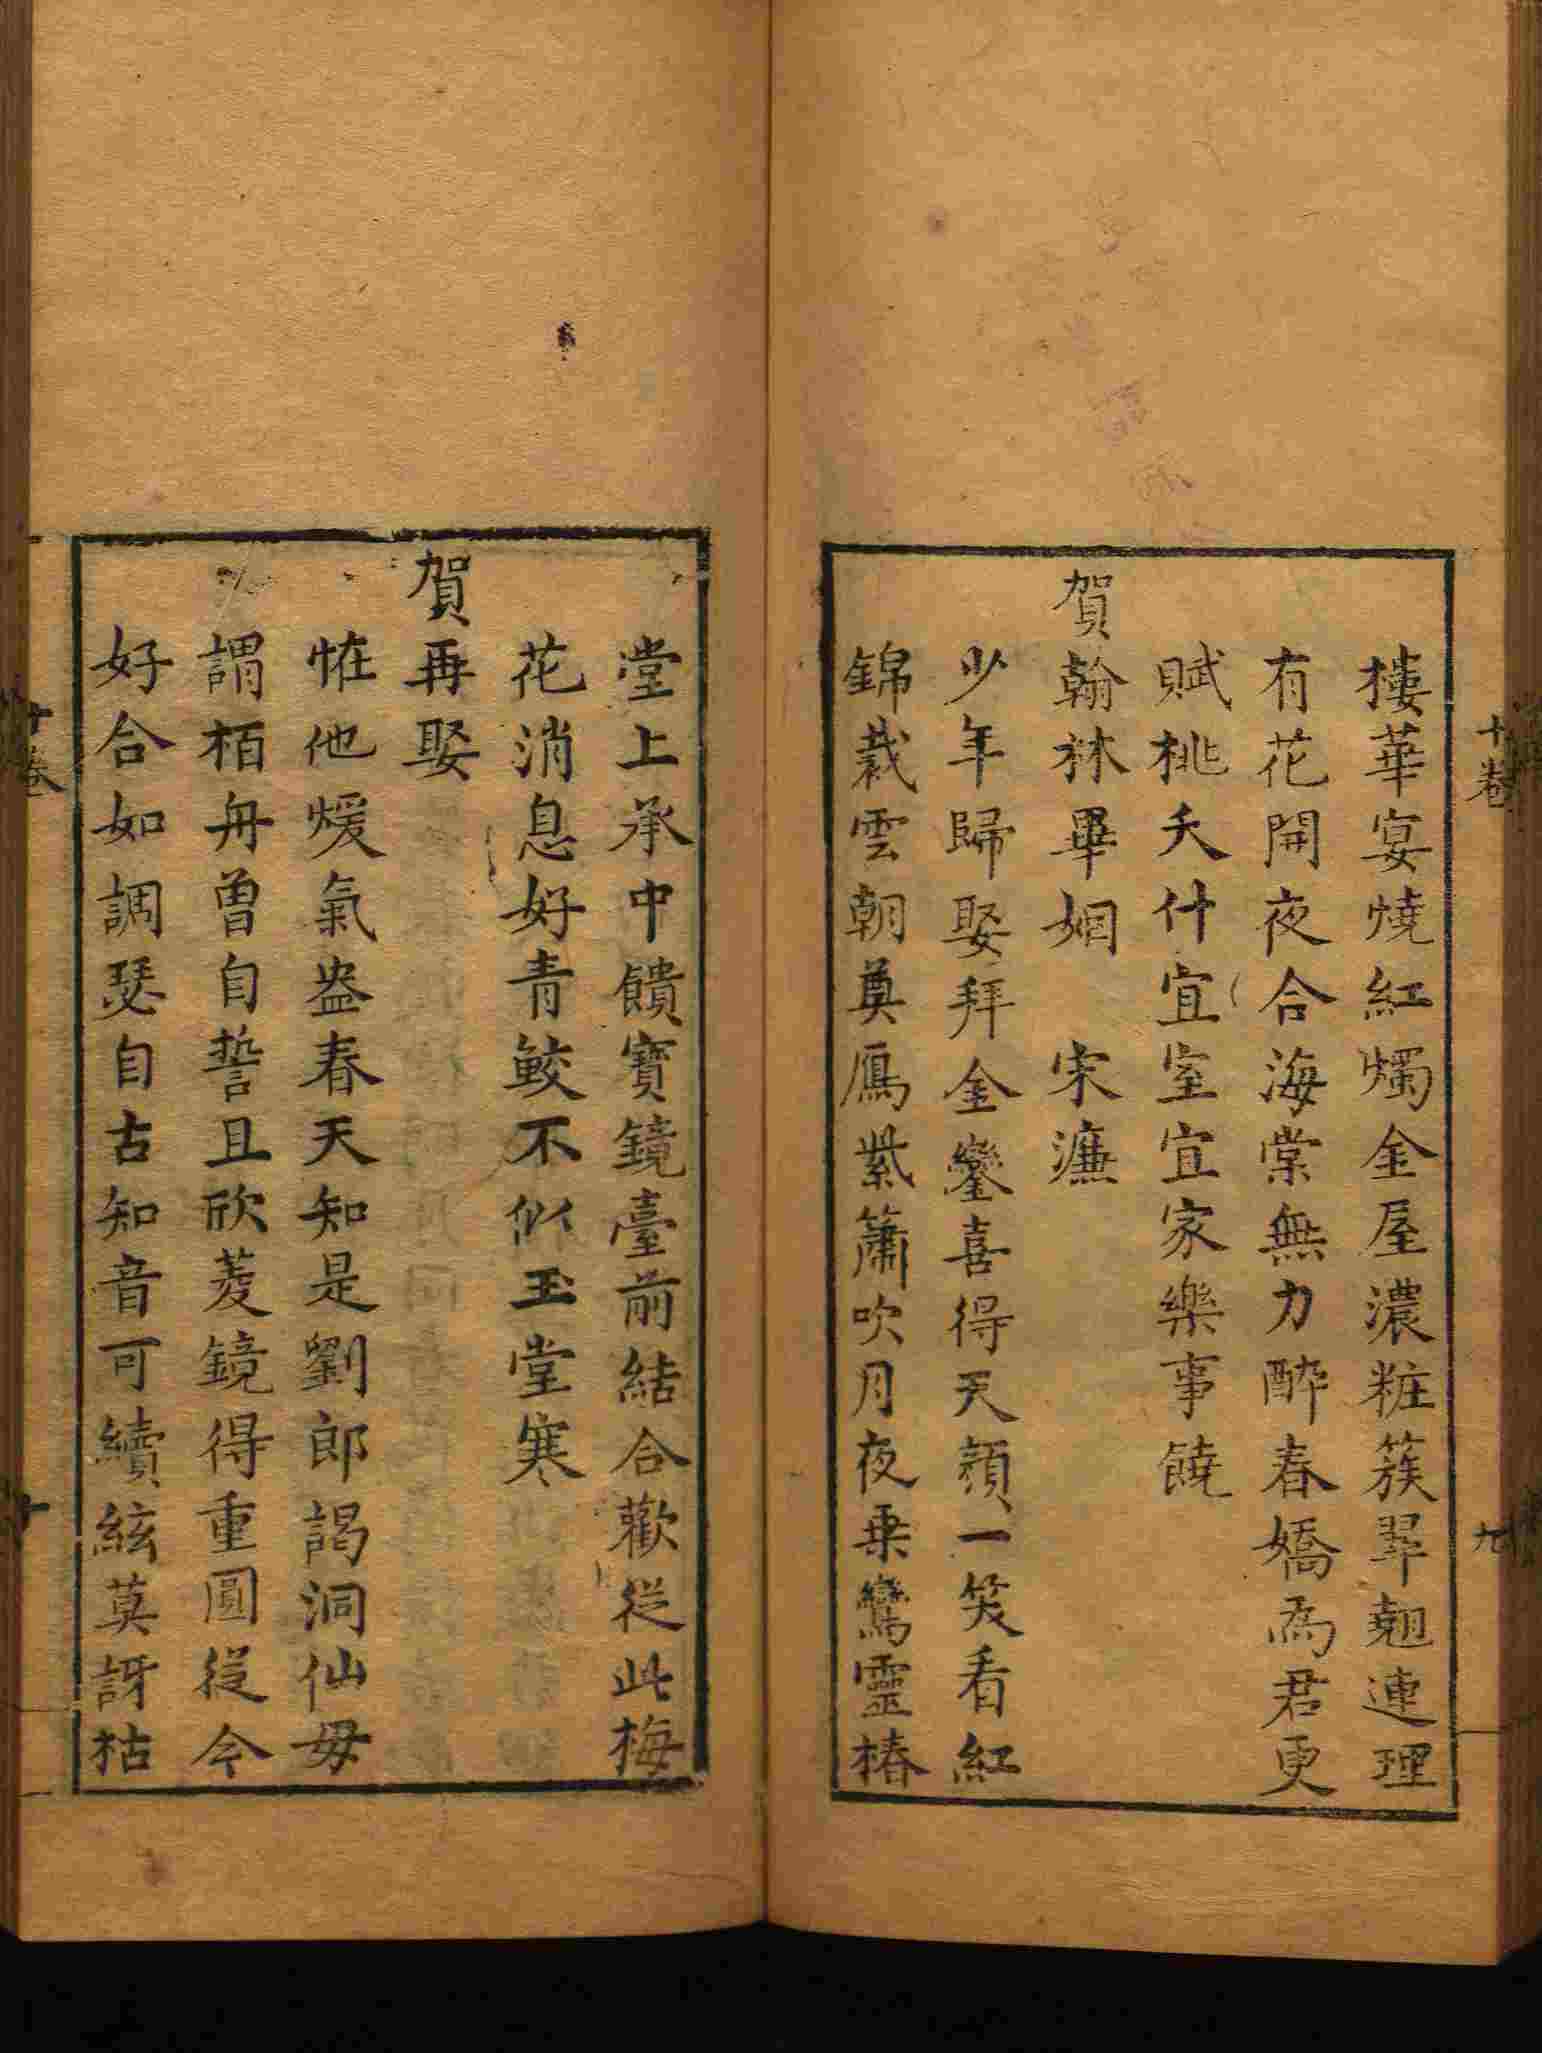 樓華宴燒紅燭金屋濃粧簇翠翹連理
有花開夜合海棠無力醉春嬌為君更
賦桃夭什宜室宜家樂事饒
賀翰林畢姻　宋濂
少年歸娶拜金鑾喜得天顏一笑看紅
錦裁雲朝奠鴈紫簫吹月夜乗鸞靈椿
十卷
九
堂上承中饋寶鏡臺前結合歡從此梅
花消息好青鮫不似玉堂寒
賀再娶
恠他煖氣盎春天知是劉郎謁洞仙毋
謂栢舟曾自誓且欣菱鏡得重圓從今
好合如調瑟自古知音可續絃莫訝枯
十卷
十